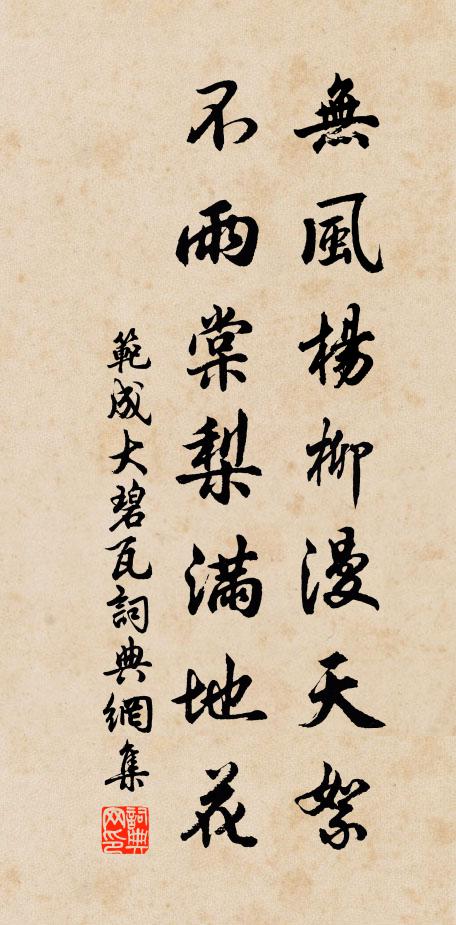 無風楊柳漫天絮
不雨棠梨滿地花
範成大碧瓦詞典網集
詞典網印